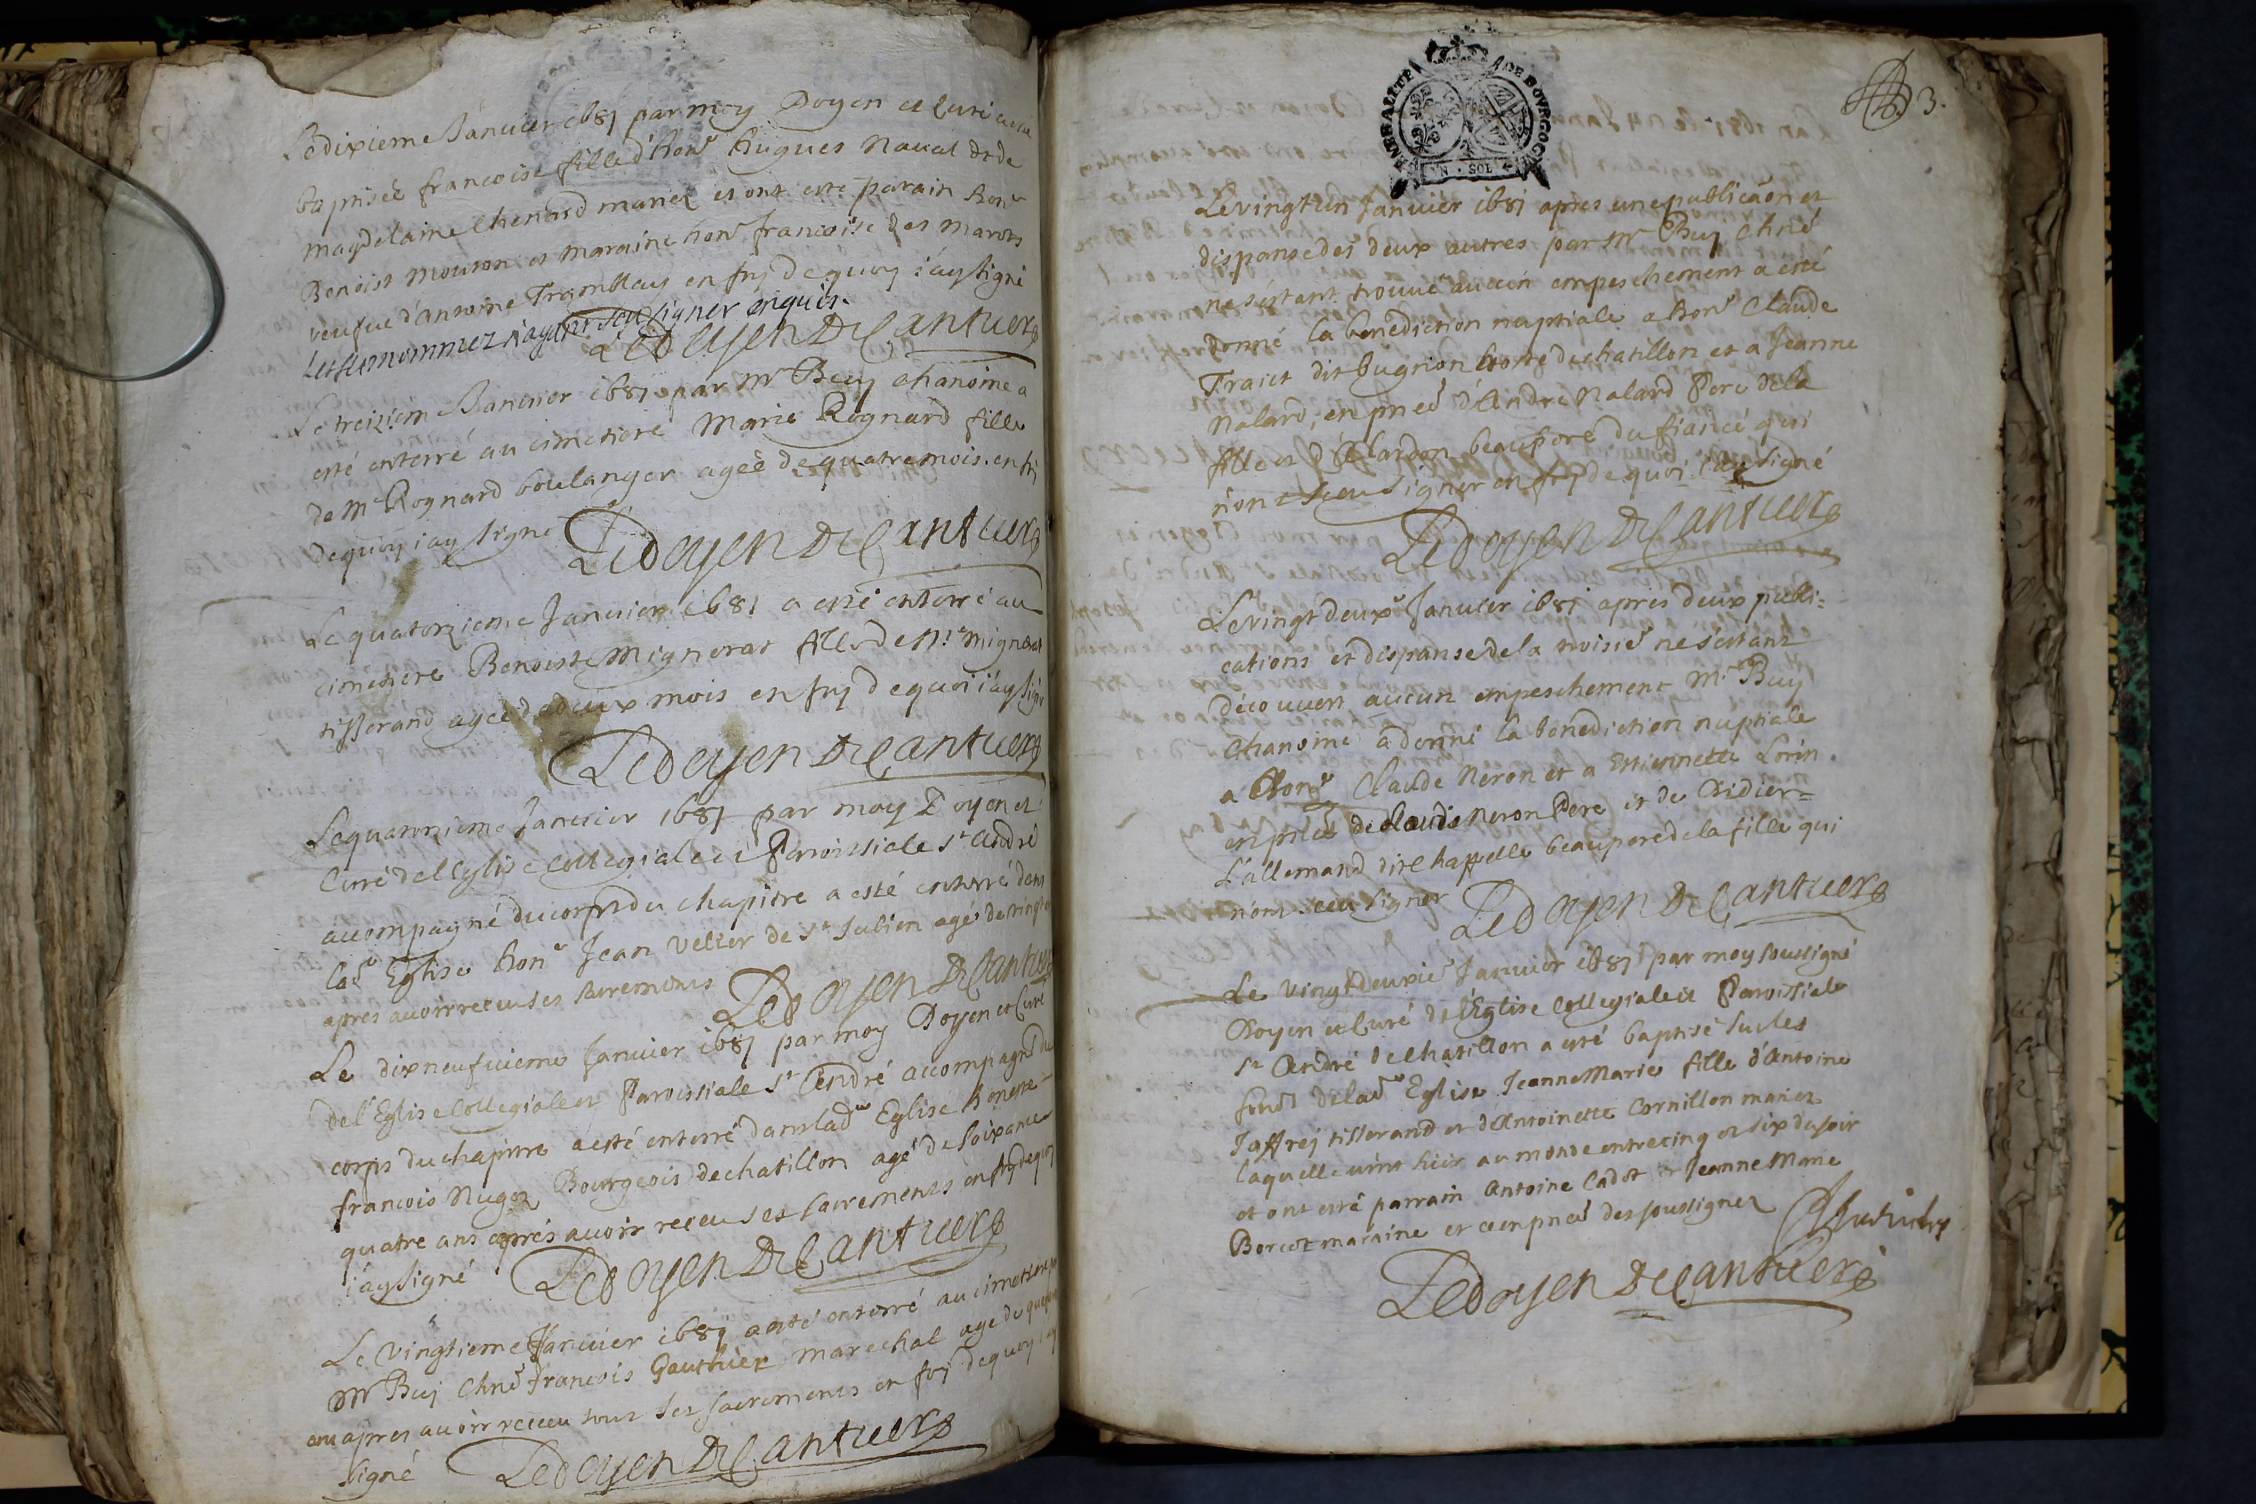 Le dixieme Januier 1681 par moy Doyen et Curé a esté
baptiséé francoise fille d'hon^r hugues Naual et de
magdelaine Chenard mariez et ont esté parain hon^r
Benoist mouton et maraine hon^e francoise des marots
veufue d'antoine Tramblay en foy de quoy i'ay signé
les surnommez n'ayant sceu signer enquis.
Ledoyen DeCantuers
Le treiziem Januier 1681 par m^r Buy chanoine a
esté enterré au cimetiere Marie Rognard fille
de m^e Rognard boulanger ageé de quatre mois. en foy
dequoy i'ay signé
Ledoyen DeCantuers
Le quatorzieme Januier 1681 a esté enterré au
cimetiere Benoiste Mignerat fille de m^e mignerat
tisserand ageé de deux mois en foy de quoi i'ay signé
Ledoyen DeCantuers
Le quatorzieme Januier 1681 par moy Doyen et
Curé de l'Eglise Collegiale et Paroissiale s^t André
accompagné du corps du chapitre a esté enterré dans
lad^e Eglise hon^r Jean Velter de s^t Julien agé de vingt
apres auoir receu ses sacrements
Ledoyen DeCantuers
Le dixneufuieme Januier 1681 par moy Doyen et Curé
de l'Eglise Collegiale et Paroissiale s^t André accompagné du
corps du chapitre a esté enterré dans lad^e Eglise honeste
francois Nugoz Bourgeois de chatillon agé de soixante
quatre ans aprés auoir receu ses sacrements en foy dequoy
i'ay signé
Ledoyen DeCantuers
Le vingtieme Januier 1681 a esté enterré au cimetiere par
m^r Buy Chne francois Gauthier marechal agé de
ans apres auoir receu tous ses sacrements en foy dequoy i'ay
signé
Ledoyen DeCantuers
GENERALITE DE BOVRGOGNE
VN · SOL
3.
Le vingt un Januier 1681 apres une publicãon et
dispanse des deux autres par m^r Buy chne
ne s'estant trouué aucun empeschement a esté
donné la benediction nuptiale a hon^r Claude
Traict dit bugnion hoste de chatillon et a Jeanne
Nalard, en pnce d'André Nalard Pere de la
fille et d' Clardon beaupere du fiancé qui
n'ont sceu signer en foy de quoi i'ay signé
Ledoyen DeCantuers
Le vingt deux^e Januier 1681 apres deux publi=
cations et dispanse de la troisie^e ne s'estant
découuert aucun empeschement M^r Buy
Chanoine a donné la benediction nuptiale
a hon^r Claude Neron et a Estiennette Lorin
en pnce de claude Neron Pere et de Didier=
L'allemand dit chappelle beaupere de la fille qui
n'ont sceu signer
Ledoyen DeCantuers
Le vingt deuxie^e Januier 1681 par moy soussigné
Doyen et Curé de l'Eglise Collegiale et Paroissiale
s^t André de chatillon a esté baptisé sur les
fonds de lad^e Eglise Jeanne Marie fille d'Antoine
Jaffrej tisserand et d'Antoinette Cornillon mariez
laquelle uint hier au monde entre cinq et six du soir
et ont esté parrain Antoine Cadot et Jeanne Marie
Borcot maraine et ce en pnce des soussignez
Ledoyen DeCantuers